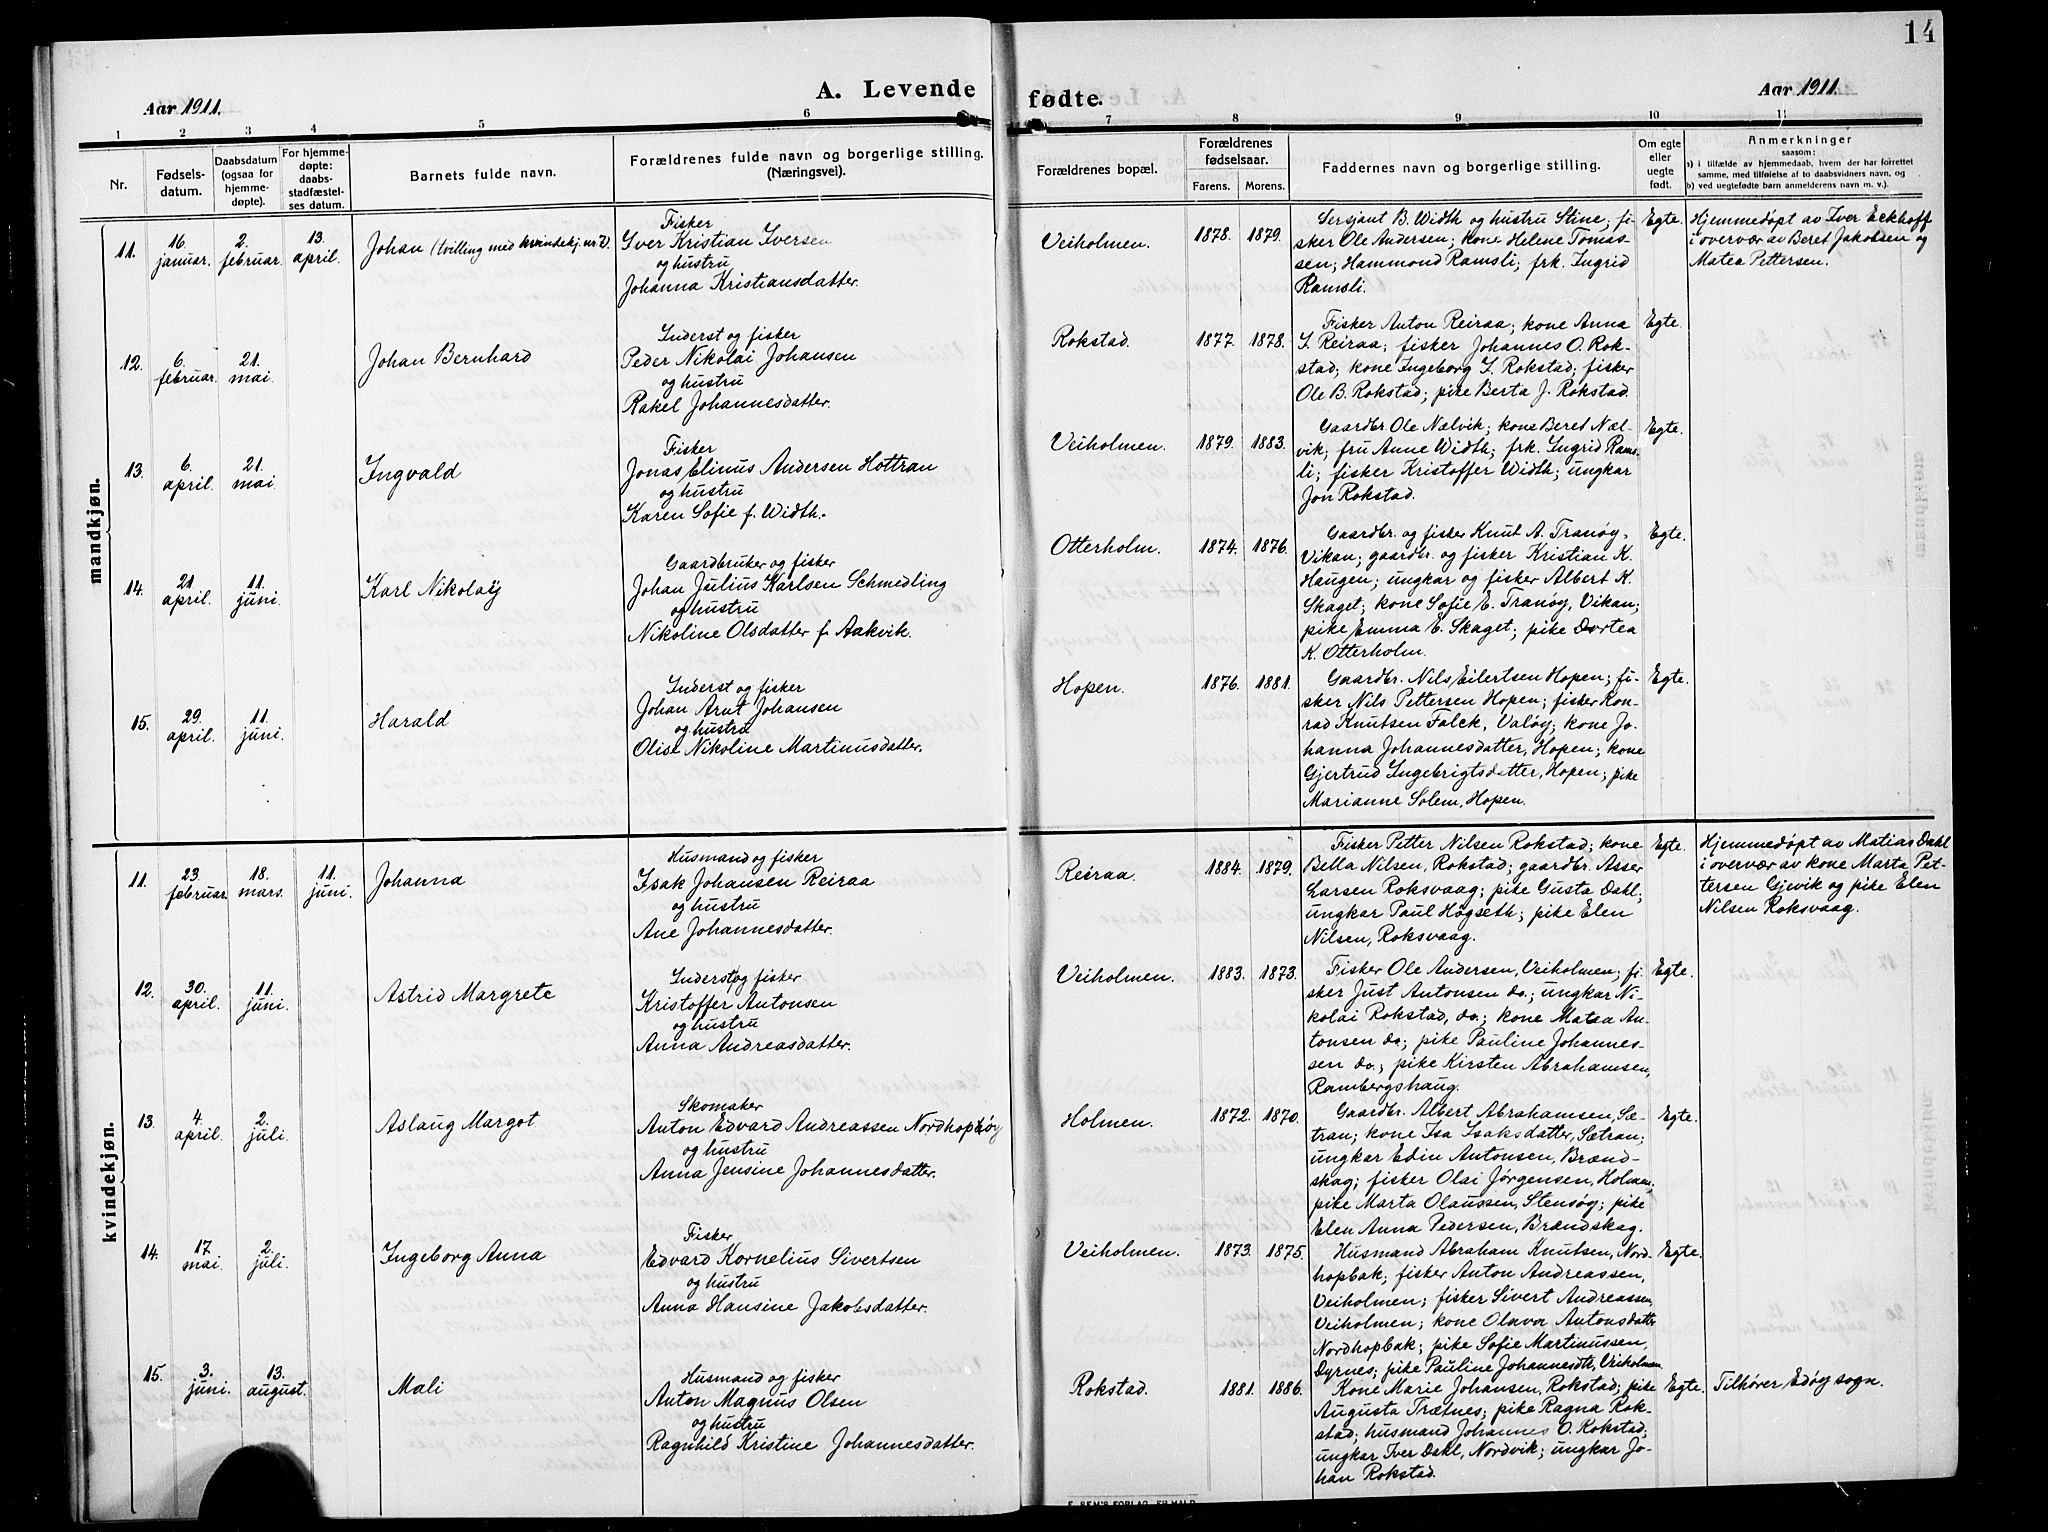 14
A. Levende fødte.
Aar 1911.
Aar 1911.
1 2 3 4 5 6 7 8 9 10 11
Nr.
Fødsels-
datum.
Daabsdatum
(ogsaa for
hjemme-
døpte).
For hjemme-
døpte:
daabs-
stadfæstel-
ses datum.
Barnets fulde navn.
Forældrenes fulde navn og borgerlige stilling.
(Næringsvei).
Forældrenes bopæl.
Forældrenes
fødselsaar.
Farens. Morens.
Faddernes navn og borgerlige stilling.
Om egte
eller
uegte
født.
Anmerkninger
saasom:
a) i tilfælde av hjemmedaab, hvem der har forrettet
samme, med tilføielse af to daabsvidners navn, og
b) ved uegtefødte barn anmelderens navn m. v.).
mandkjøn.
11.
16.
januar.
2.
februar.
13.
april.
Johan (tvilling med kvindekj. nr. 7).
Fisker
Iver Kristian Iversen
og hustru
Johanna Kristiansdatter.
Veiholmen.
1878. 1879.
Sersjant B. Width og hustru Stine; fi-
sker Ole Andersen; kone Helene Tomas-
sen; Hammond Ramsli; frk. Ingrid
Ramsli.
Egte.
Hjemmedøpt av Iver Eckhoff
i overvær av Beret Jakobsen og
Matea Pettersen.
12.
6.
februar.
21.
mai.
Johan Bernhard
Inderst og fisker
Peder Nikolai Johansen
og hustru
Rakel Johannesdatter.
Rokstad.
1877. 1878.
Fisker Anton Reiraa; kone Anna
I. Reiraa; fisker Johannes O. Rok-
stad; kone Ingeborg I. Rokstad; fisker
Ole B. Rokstad; pike Berta J. Rokstad.
Egte.
13.
6.
april.
21.
mai.
Ingvald
Fisker
Jonas Elinus Andersen Hottran
og hustru
Karen Sofie f. Width.
Veiholmen.
1879. 1883.
Gaardbr. Ole Nælvik; kone Beret Næl-
vik; fru Anne Width; frk. Ingrid Rams-
li; fisker Kristoffer Width; ungkar
Jon Rokstad.
Egte.
14.
21.
april.
11.
juni.
Karl Nikolaÿ
Gaardbruker og fisker
Johan Julius Karlsen Schmedling
og hustru
Nikoline Olsdatter f. Aakvik.
Otterholm.
1874. 1876.
Gaardbr. og fisker Knut A. Tranøy,
Vikan; gaardbr. og fisker Kristian K.
Haugen; ungkar og fisker Albert K.
Skaget; kone Sofie E. Tranøy, Vikan;
pike Emma E. Skaget; pike Dortea
K. Otterholm.
Egte.
15.
29.
april.
11.
juni.
Harald
Inderst og fisker
Johan Arnt Johansen
og hustru
Olise Nikoline Martinusdatter.
Hopen.
1876. 1881.
Gaardbr. Nils Eilertsen Hopen; fi-
sker Nils Pettersen Hopen; fisker Kon-
rad Knutsen Falck, Valøy; kone Jo-
hanna Johannesdatter, Hopen; kone
Gjertrud Ingebrigtsdatter, Hopen; pike
Marianne Solem, Hopen.
Egte.
kvindekjøn.
11.
23.
februar.
18.
mars.
11.
juni.
Johanna
Husmand og fisker
Isak Johansen Reiraa
og hustru
Ane Johannesdatter.
Reiraa.
1884. 1879.
Fisker Petter Nilsen Rokstad; kone
Bella Nilsen, Rokstad; gaardbr. Asser
Larsen Roksvaag; pike Gusta Dahl;
ungkar Paul Høgseth; pike Elen
Nilsen, Roksvaag.
Egte.
Hjemmedøpt av Matias Dahl
i overvær av kone Marta Pet-
tersen Gjevik og pike Elen
Nilsen Roksvaag.
12.
30.
april.
11.
juni.
Astrid Margrete
Inderst og fisker
Kristoffer Antonsen
og hustru
Anna Andreasdatter.
Veiholmen.
1883. 1873.
Fisker Ole Andersen, Veiholmen; fi-
sker Just Antonsen do.; ungkar Ni-
kolai Rokstad, do.; kone Matea An-
tonsen do; pike Pauline Johannes-
sen do.; pike Kirsten Abrahamsen,
Rambergshaug.
Egte.
13.
4.
april.
2.
juli.
Aslaug Margot
Skomaker
Anton Edvard Andreassen Nordhopøy
og hustru
Anna Jensine Johannesdatter.
Holmen.
1872. 1870.
Gaardbr. Albert Abrahamsen, Sæ-
tran; kone Isa Isaksdatter, Sætran;
ungkar Edin Antonsen, Brænd-
skag; fisker Olai Jørgensen, Holmen;
pike Marta Olaussen, Stensøy; pike
Elen Anna Pedersen, Brændskag.
Egte.
14.
17.
mai.
2.
juli.
Ingeborg Anna
Fisker
Edvard Kornelius Sivertsen
og hustru
Anna Hansine Jakobsdatter.
Veiholmen.
1873. 1875.
Husmand Abraham Knutsen, Nord-
hopbak; fisker Anton Andreassen,
Veiholmen; fisker Sivert Andreassen,
Veiholmen; kone Olava Antonsdatter
Nordhopbak; pike Sofie Martinussen,
Dyrnes; pike Pauline Johannesdtr, Veiholmen.
Egte.
15.
3.
juni.
13.
august.
Mali
Husmand og fisker
Anton Magnus Olsen
og hustru
Ragnhild Kristine Johannesdatter.
Rokstad.
1881. 1886.
Kone Marie Johansen, Rokstad; pike
Augusta Trætnes; pike Ragna Rok-
stad; husmand Johannes O. Rokstad;
ungkar Iver Dahl, Nordvik; ungkar Jo-
han Rokstad.
Egte.
Tilhører Edøy sogn.